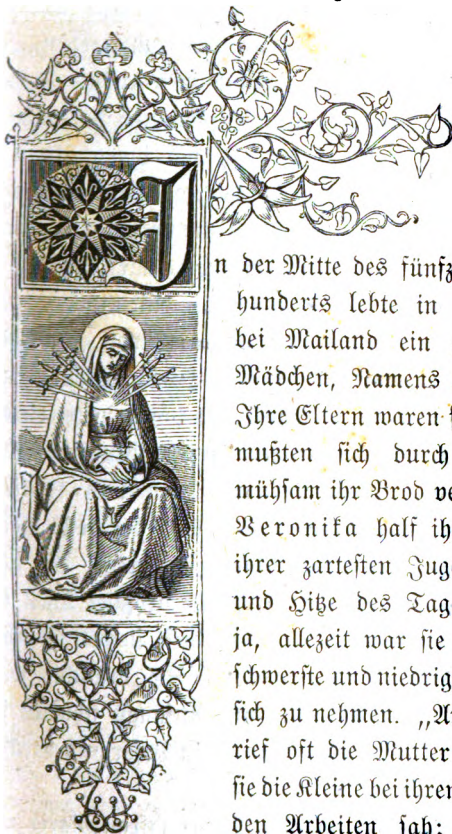 In der Mitte des fünfz
hunderts lebte in
bei Mailand ein
Mädchen, Namens
Ihre Eltern waren
mußten sich durch
mühsam ihr Brod ve
Veronika half ih
ihrer zartesten Jug
und Hitze des Tag
ja, allezeit war sie
schwerste und niedrig
sich zu nehmen. „A
rief oft die Mutter
sie die Kleine bei ihren
den Arbeiten sah: